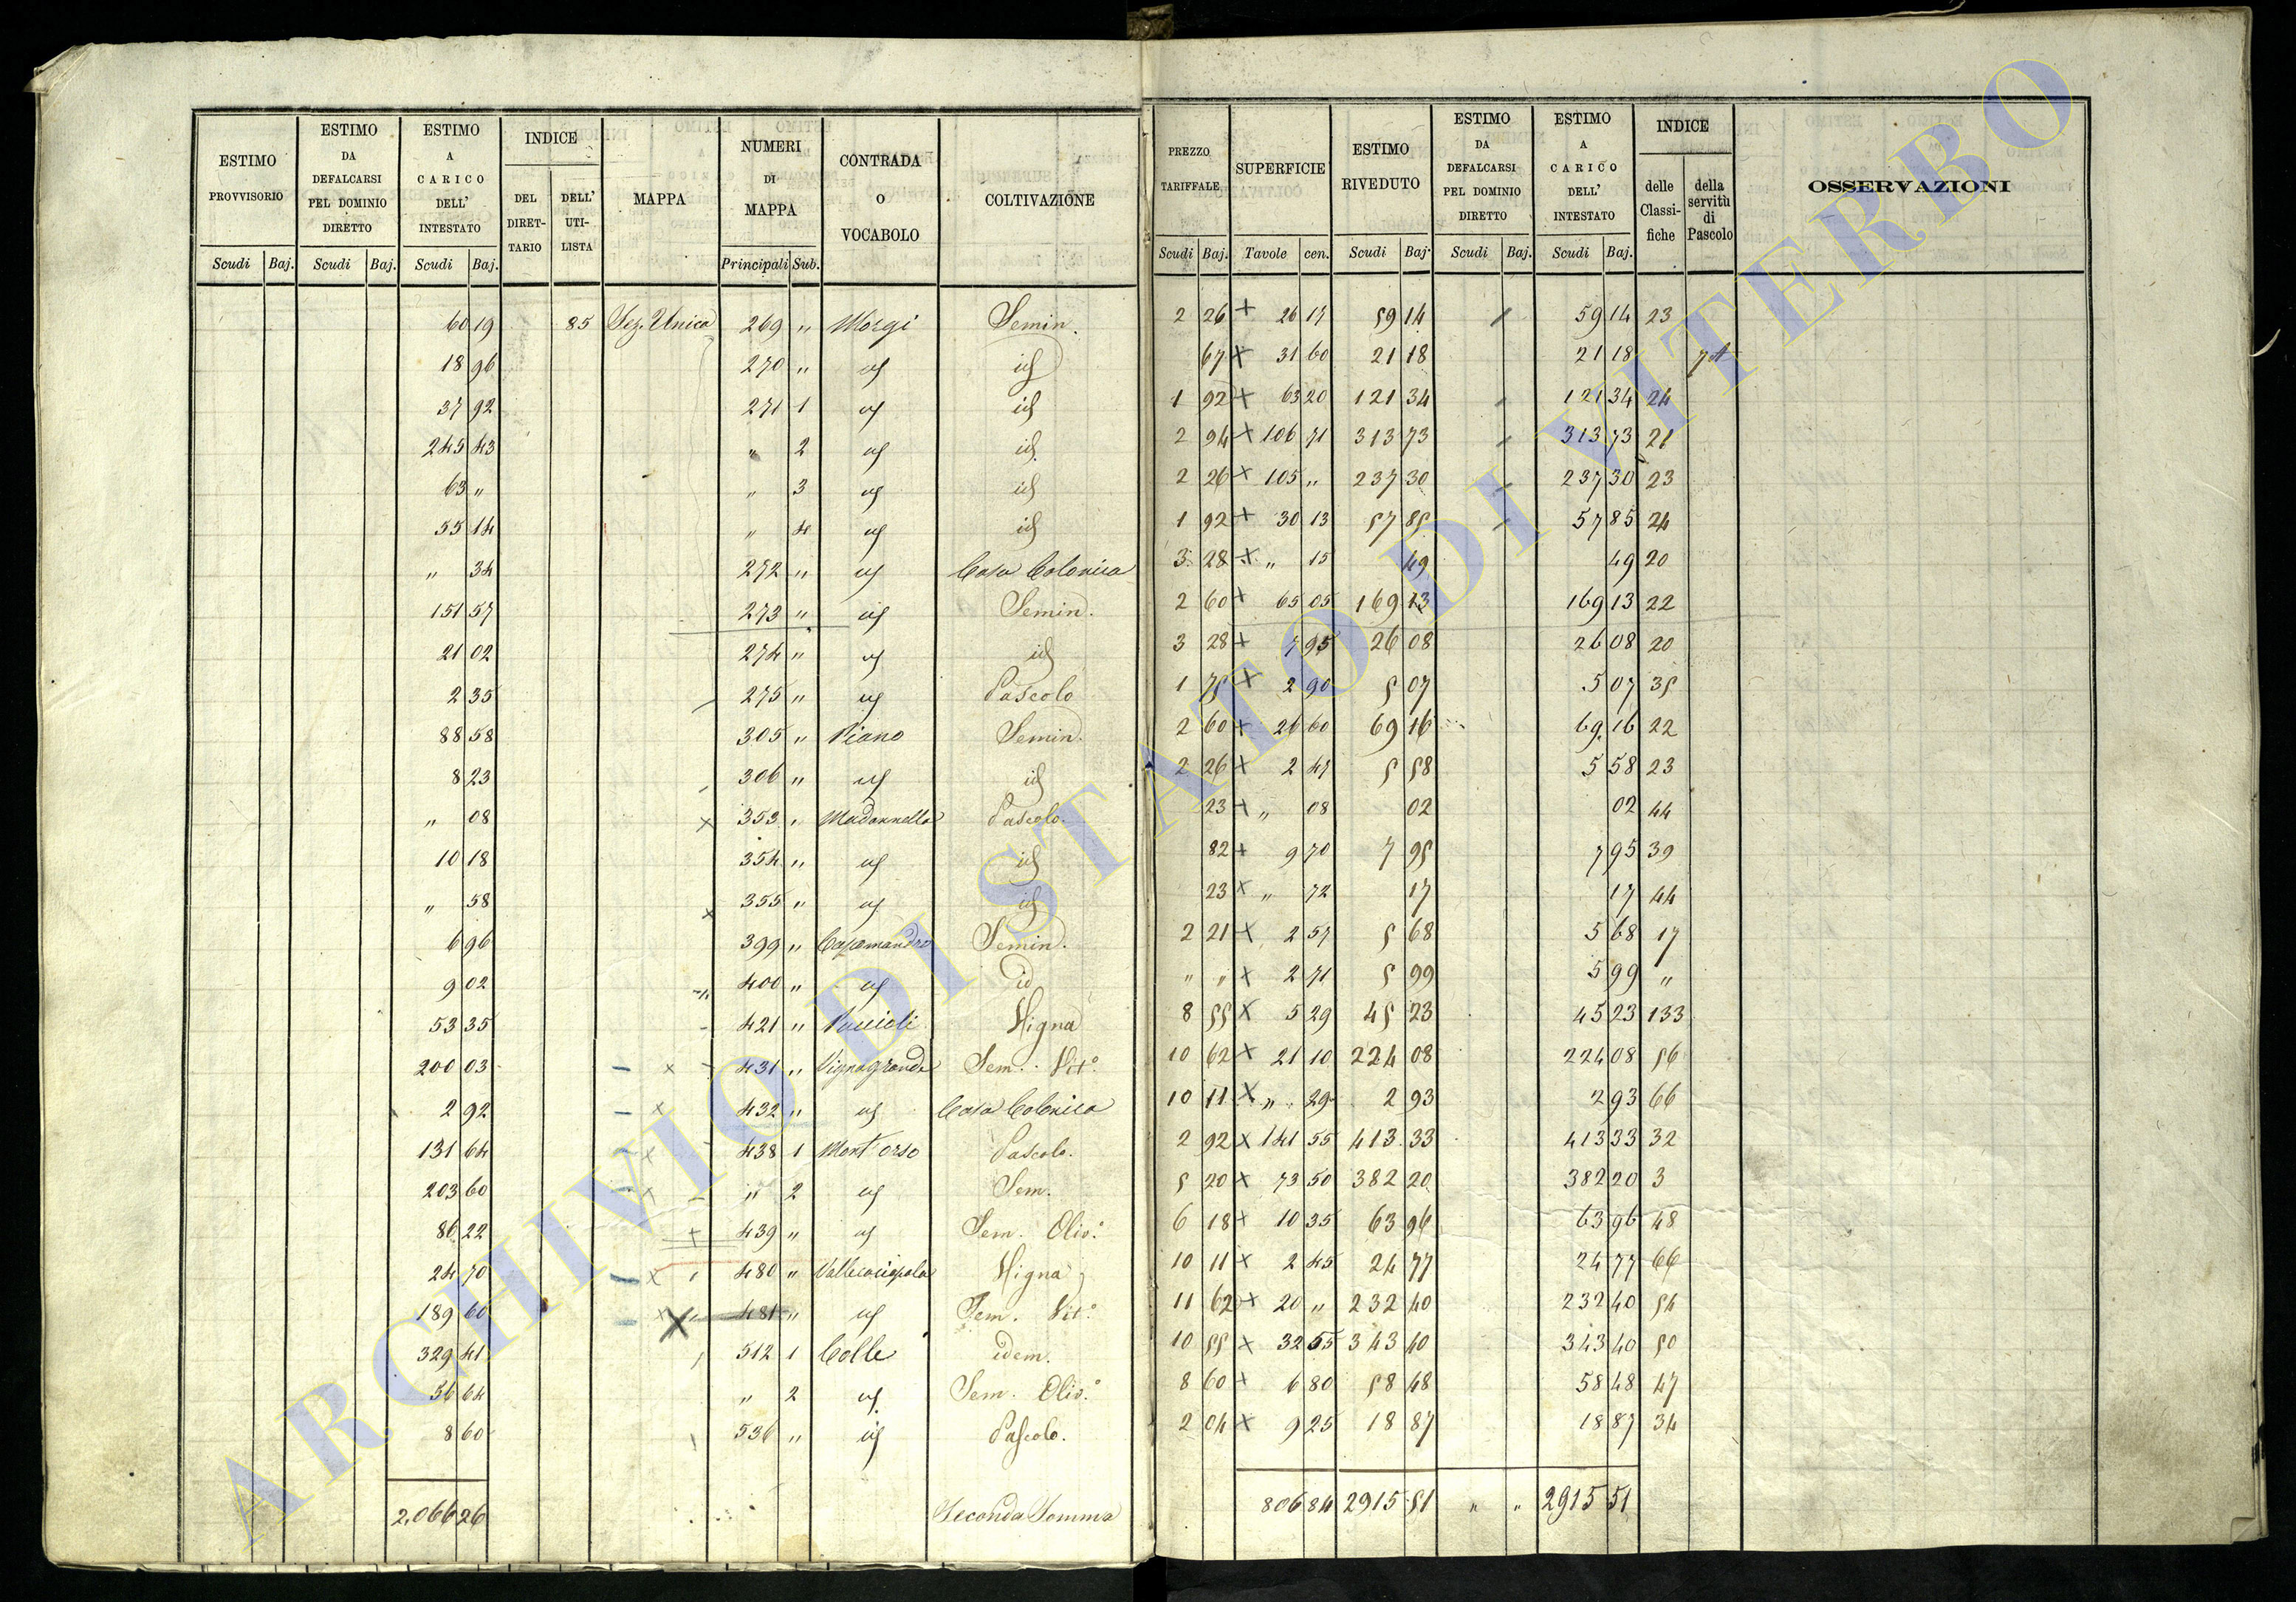 ESTIMO PROVVISORIO
ESTIMO DA DEFALCARSI PEL DOMINIO DIRETTO
ESTIMO A CARICO DELL' INTESTATO
INDICE
DEL DIRET-TARIO
DELL' UTI-LISTA
MAPPA
NUMERI DI MAPPA
CONTRADA O VOCABOLO
COLTIVAZIONE
PREZZO TARIFFALE
SUPERFICIE
ESTIMO RIVEDUTO
ESTIMO DA DEFALCARSI PEL DOMINIO DIRETTO
ESTIMO A CARICO DELL' INTESTATO
INDICE
delle Classi-fiche
della servitù di Pascolo
OSSERVAZIONI
Scudi Baj. Scudi Baj. Scudi Baj. Principali Sub. Scudi Baj. Tavole cen. Scudi Baj. Scudi Baj. Scudi Baj.
60 19 85 Sez. Unica 269 " Morgi Semin. 2 26 + 26 17 59 14 59 14 23
18 96 270 " id id 67 + 31 60 21 18 21 18
37 92 271 1 id id 1 92 + 63 20 121 34 121 34 24
245 43 " 2 id id. 2 94 + 106 71 313 73 313 73 21
63 " " 3 id id 2 26 + 105 " 237 30 237 30 23
55 14 " 4 id id 1 92 + 30 13 57 85 57 85 24
" 34 272 " id Casa Colonica 3 28 + " 15 49 49 20
151 57 273 " id Semin. 2 60 + 65 05 169 13 169 13 22
21 02 274 " id id 3 28 + 7 95 26 08 26 08 20
2 35 275 " id Pascolo 1 75 + 2 90 5 07 5 07 35
88 58 305 " Piano Semin. 2 60 + 26 60 69 16 69 16 22
8 23 306 " id id 2 26 + 2 47 5 58 5 58 23
" 08 x 353 " Madonnella Pascolo. 23 + " 08 02 02 44
10 18 354 " id id 82 + 9 70 7 95 7 95 39
" 58 x 355 " id id 23 x " 72 17 17 44
6 96 399 " Semin. 2 21 x 2 57 5 68 5 68 17
9 02 400 " id id " " x 2 71 5 99 5 99 "
53 35 421 " Vigna 8 55 x 5 29 45 23 45 23 133
200 03 x 431 " Vignagrande Sem. Vit.° 10 62 x 21 10 224 08 224 08 56
2 92 x 432 " id Casa Colonica 10 11 x " 29 2 93 2 93 66
131 64 x 438 1 Mont'orso Pascolo. 2 92 x 141 55 413 33 413 33 32
203 60 x " 2 id Sem. 5 20 x 73 50 382 20 382 20 3
86 22 + 439 " id Sem. Oliv.° 6 18 x 10 35 63 96 63 96 48
24 70 x 480 " Vigna 10 11 x 2 45 24 77 24 77 66
189 60 x 481 " id Sem. Vit.° 11 62 x 20 " 232 40 232 40 54
329 41 512 1 Colle idem. 10 55 x 32 55 343 40 343 40 50
36 64 " 2 id Sem. Oliv.° 8 60 + 6 80 58 48 58 48 47
8 60 536 " id Pascolo. 2 04 x 9 25 18 87 18 87 34
2,066 26 Seconda Somma 806 84 2915 51 " " 2915 51
ARCHIVIO DI STATO DI VITERBO